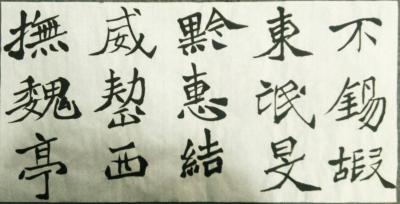 不錫嘏
東旻
黔惠結
威西
撫魏亭